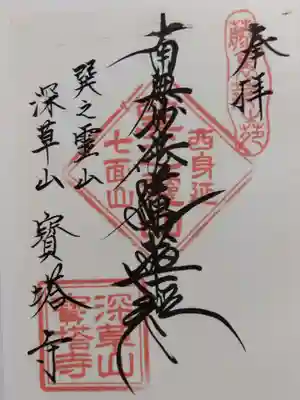 奉拝
南無妙法蓮華経
西身延
七面山
巽之霊山
深草山 寳塔寺
深草山
寳塔寺